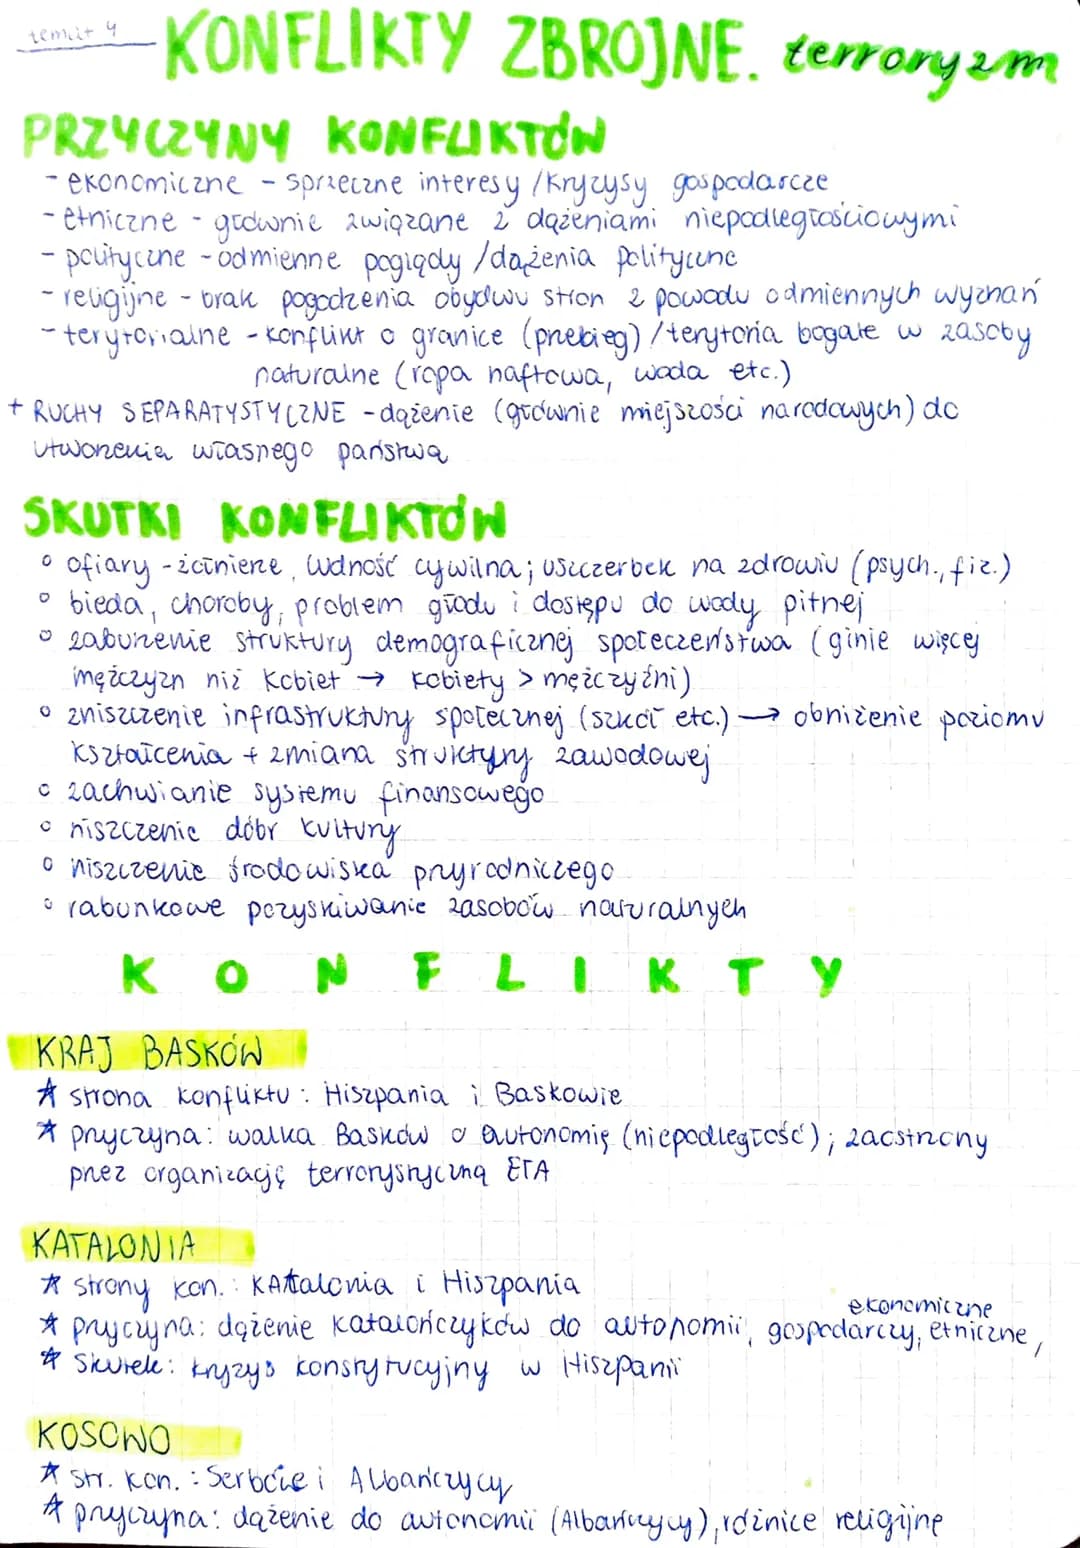 temat 4 KONFLIKTY ZBROJNE. terroryzm
PRZYCZYNY KONFLIKTÓW
- ekonomiczne - sprzeczne interesy / kryzysy gospodarcze
- etniczne - głównie związane z dążeniami niepodległościowymi
- polityczne - odmienne poglądy / dążenia polityczne
- religijne - brak pogodzenia obydwu stron z powodu odmiennych wyznań
- terytorialne - konflikt o granice (przebieg) / terytoria bogate w zasoby
naturalne (ropa naftowa, woda etc.)
+ RUCHY SEPARATYSTYCZNE - dążenie (głównie mniejszości narodowych) do
utworzenia własnego państwa
SKUTKI KONFLIKTÓW
° ofiary - żołnierze, ludność cywilna; uszczerbek na zdrowiu (psych., fiz.)
° bieda, choroby, problem głodu i dostępu do wody pitnej
° zaburzenie struktury demograficznej społeczeństwa (ginie więcej
mężczyzn niż kobiet → kobiety > mężczyźni)
° zniszczenie infrastruktury społecznej (szkół etc.) → obniżenie poziomu
kształcenia + zmiana struktury zawodowej
° zachwianie systemu finansowego
° niszczenie dóbr kultury
° niszczenie środowiska przyrodniczego
° rabunkowe pozyskiwanie zasobów naturalnych
KONFLIKTY
KRAJ BASKÓW
☆ strona konfliktu: Hiszpania i Baskowie
☆ przyczyna: walka Basków o autonomię (niepodległość); zaostrzony
przez organizację terrorystyczną ETA
KATALONIA
☆ strony kon.: KAtalonia i Hiszpania
ekonomiczne
☆ przyczyna: dążenie katalończyków do autonomii, gospodarczy, etniczne,
☆ Skutek: kryzys konstytucyjny w Hiszpanii
KOSOWO
☆ str. kon.: Serbowie i Albańczycy
☆ przyczyna: dążenie do autonomii (Albańczycy), różnice religijne